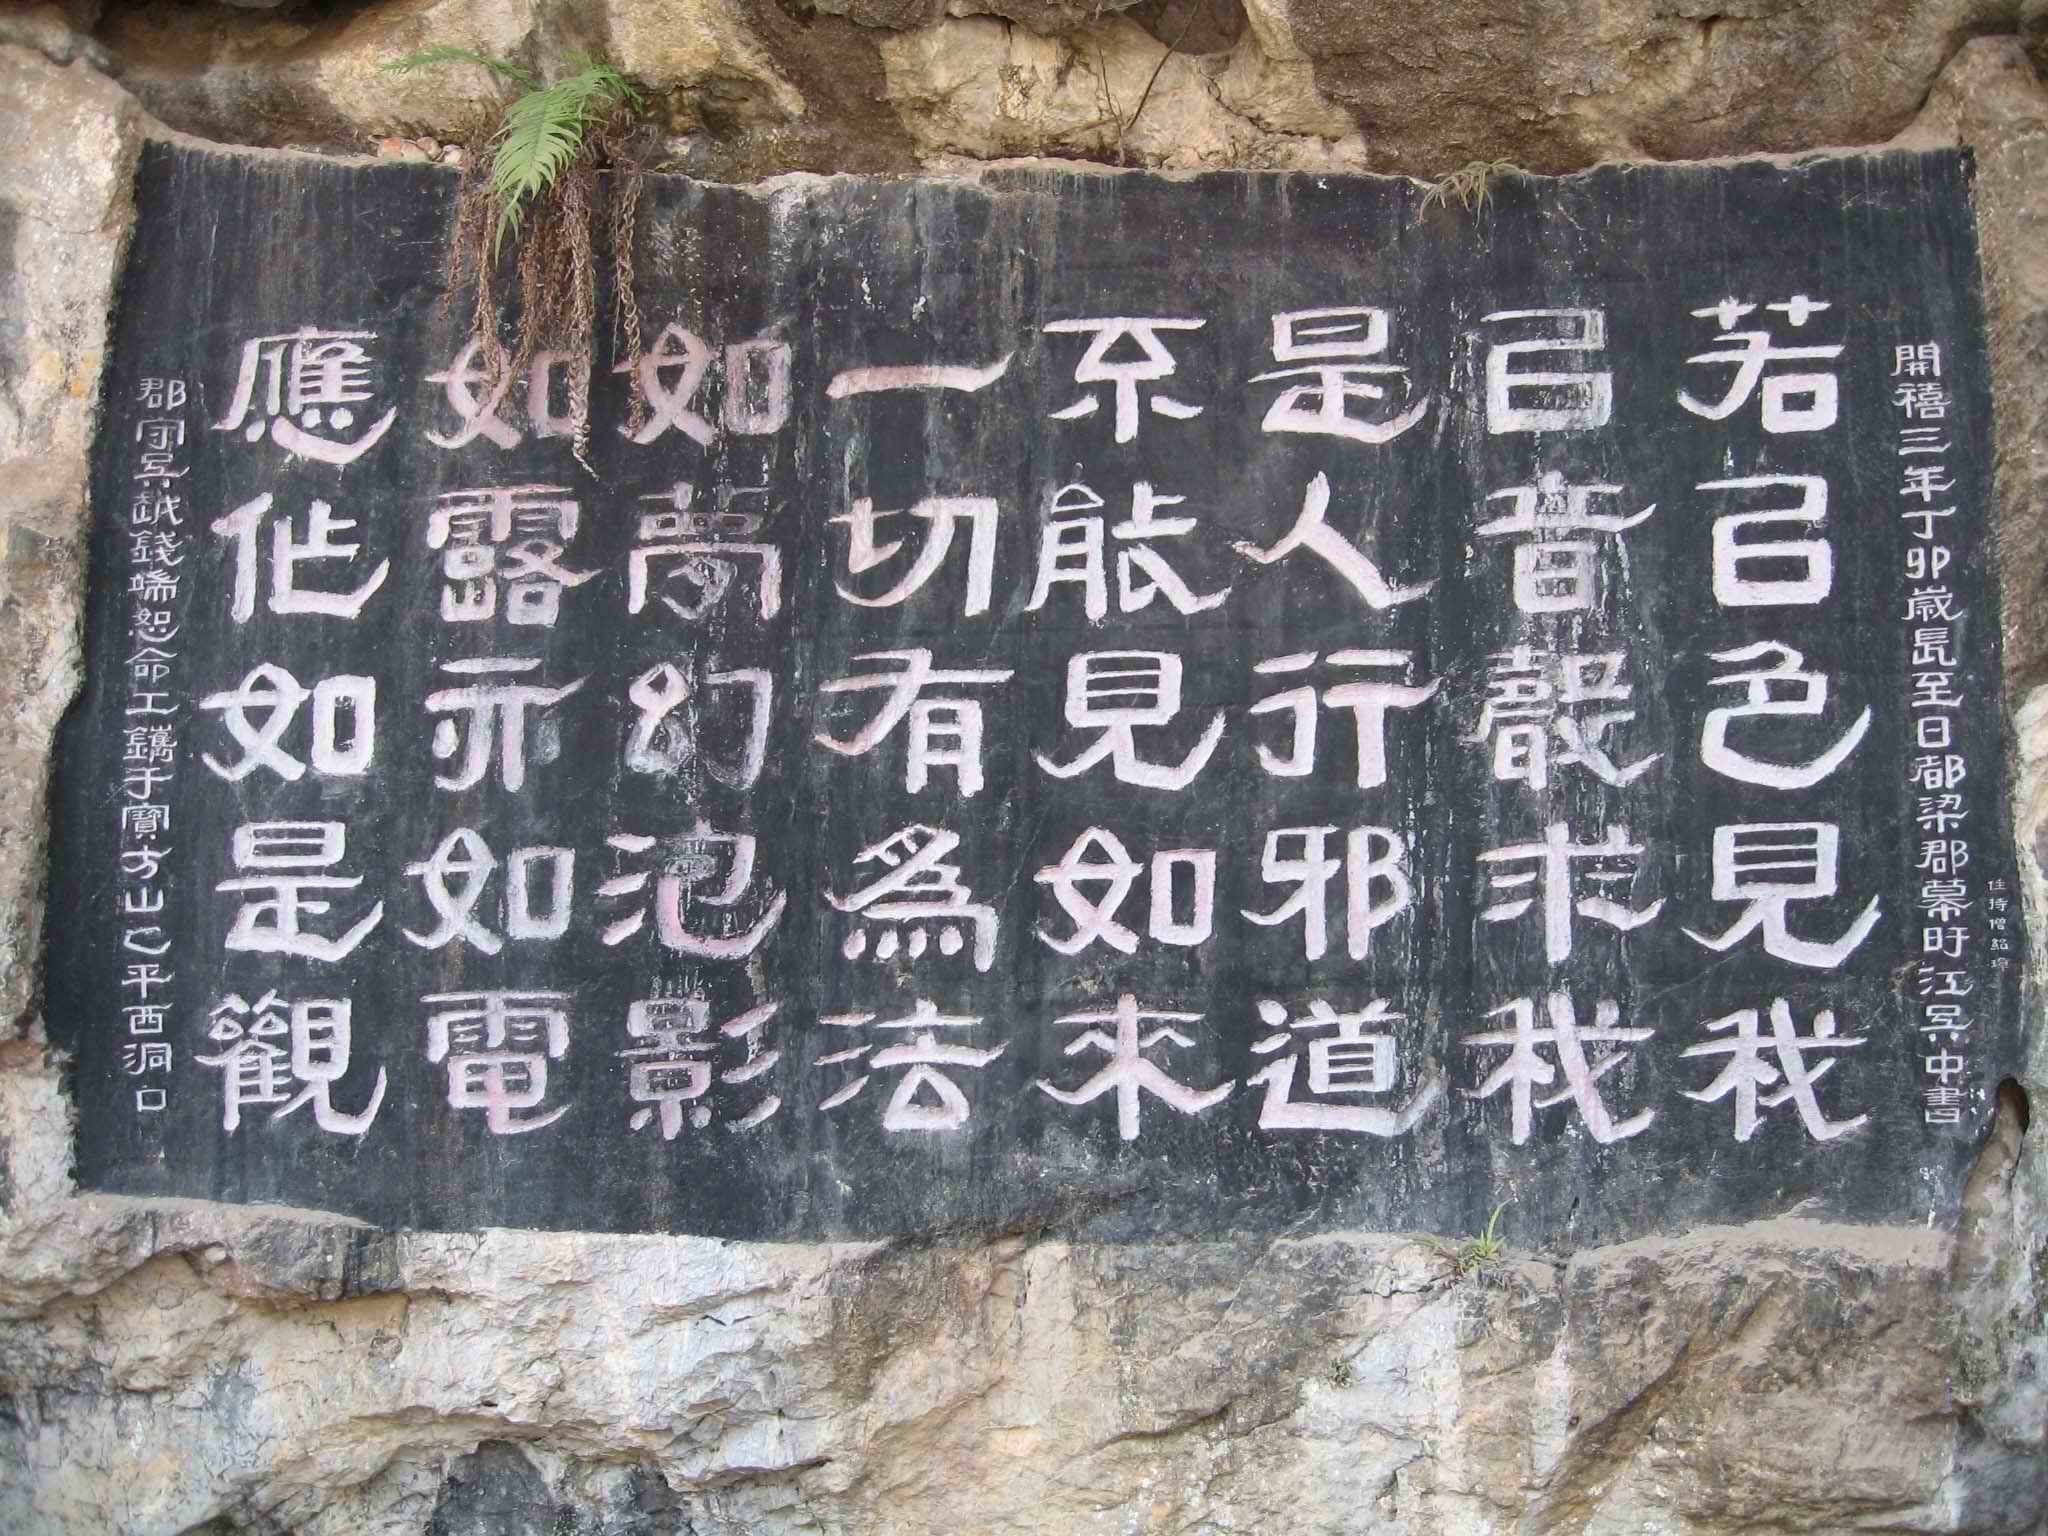 住持僧紹
開禧三年丁卯歲長至日都梁郡幕盱江吳中書
若㠯色見我
㠯音聲求我
是人行邪道
不能見如來
一切有為法
如夢幻泡影
如露亦如電
應作如是觀
郡守吳越錢端恕命工鐫于寶方山之平西洞口